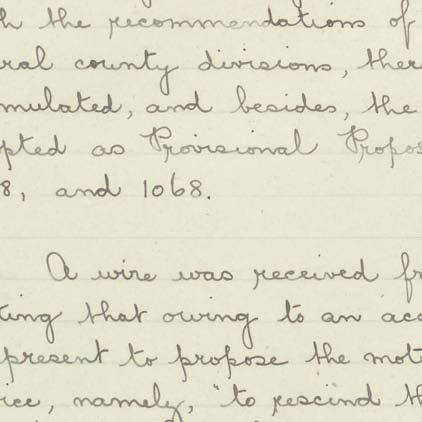 h the recommendations of
ral county divisions, ther
mulated, and besides, the
pted as Provisional Propos
8, and 1068.
A wire was received fr
ting that owing to an acc
present to propose the mot
ice, namely, "to rescind th